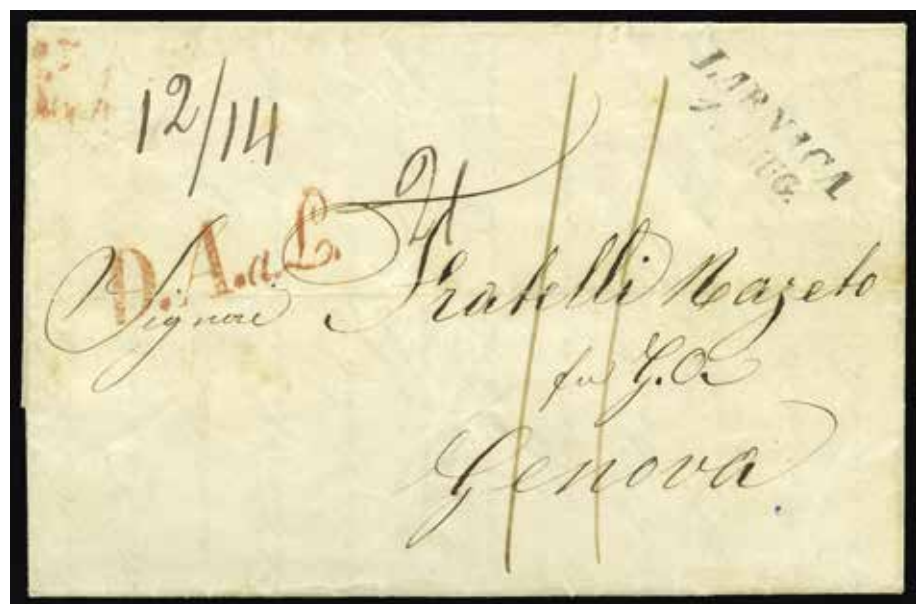 12/14
LARNACA
AUG.
D.A.a.L.
Signori Fratelli Razeto
fu G.
Genova